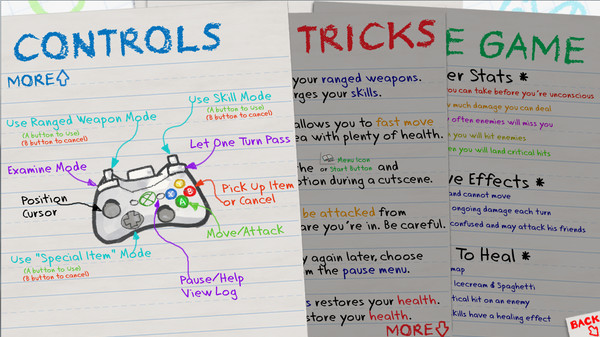 CONTROLS
MORE
Use Ranged Weapon Mode
(A button to use)
(B button to cancel)
Use Skill Mode
(A button to use)
(B button to cancel)
Examine Mode
Let One Turn Pass
Position
Cursor
Pick Up Item
or Cancel
Move/Attack
Use "Special Item" Mode
(A button to use)
(B button to cancel)
Pause/Help
View Log
X
Y
B
A
TRICKS
your ranged weapons.
rges your skills.
allows you to fast move
ea with plenty of health.
Menu Icon
or Start Button
and
otion during a cutscene.
be attacked from
are you're in. Be careful.
y again later, choose
m the pause menu.
s restores your health.
store your health.
MORE
E GAME
er Stats *
you can take before you're unconscious
much damage you can deal
often enemies will miss you
you will hit enemies
en you will land critical hits
ve Effects *
and cannot move
ongoing damage each turn
confused and may attack his friends
To Heal *
map
Icecream & Spaghetti
tical hit on an enemy
skills have a healing effect
BACK